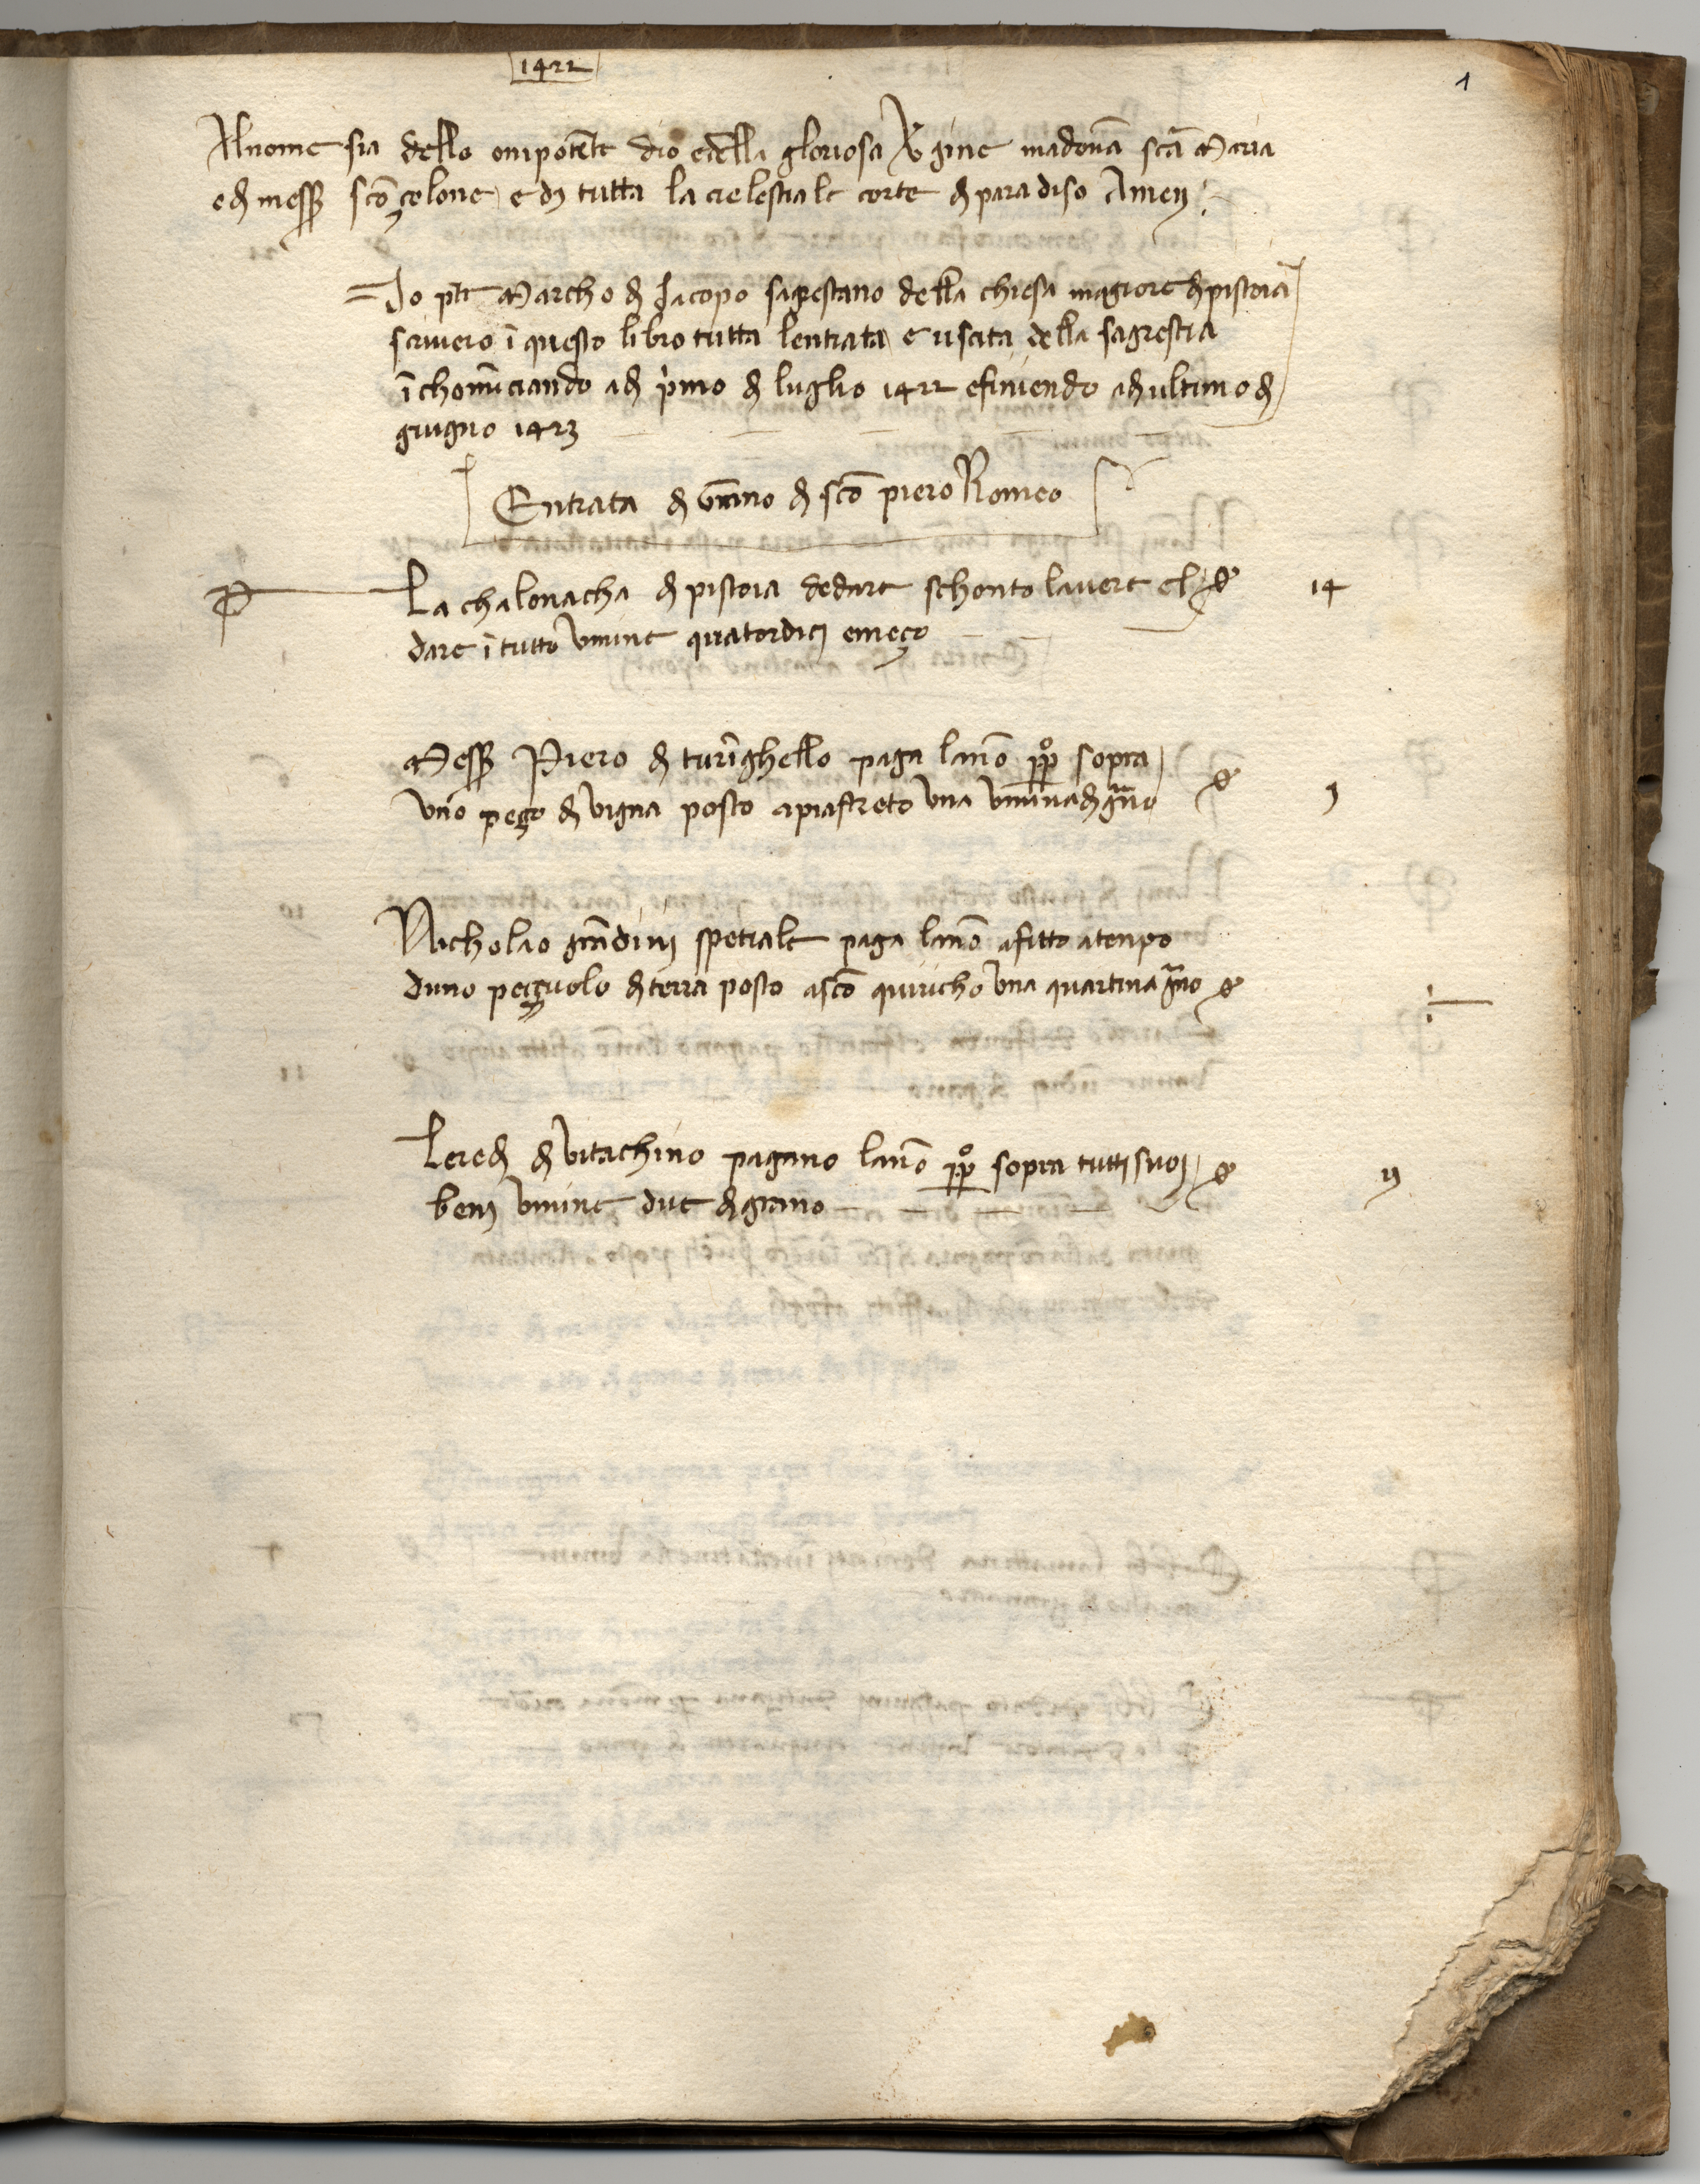 1422
1
Al nome sia dello onipotẽte dio e della gloriosa vgine madonã scã Maria
e di mess scõ çelone e di tutta la cielestiale corte di paradiso Amen
Io pte Marcho di Jacopo sagrestano della chiesa magiore di pistoia
scriverò ĩ questo libro tutta lentrata e uscita della sagrestia
ĩchomĩciando adi pimo di luglio 1422 e finiendo adi ultimo di
giugno 1423
Entrata di di scõ piero Romeo
P La chalonacha di pistoia dedare schonto lavere el 14
dare ĩ tutto umine quatordici e meço
Mess Piero di turĩghello paga lanõ ppº sopra
uno peço di vigna posto apiastreto una umina di gno 1
Nicholao spetiale paga lanõ afitto atenpo
duno peçuolo di terra posto ascõ quiricho una quartina gno
Leredi di vitachino pagano lanõ ppº sopra tutti suoi
beni umine due di grano ij